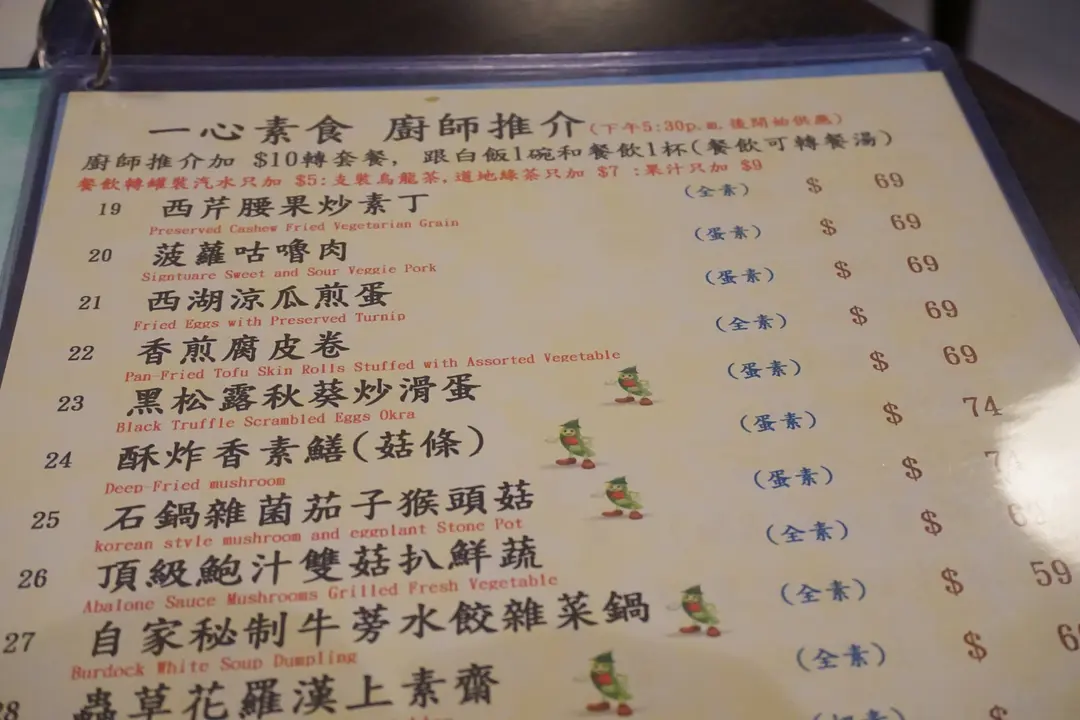 一心素食 廚師推介(下午5:30p.m.後開始供應)
廚師推介加 $10轉套餐, 跟白飯1碗和餐飲1杯(餐飲可轉餐湯)
餐飲轉罐裝汽水只加 $5:支裝烏龍茶,道地綠茶只加 $7 :果汁只加 $9
19 西芹腰果炒素丁 (全素) $ 69
Preserved Cashew Fried Vegetarian Grain
20 菠蘿咕嚕肉 (蛋素) $ 69
Signtuare Sweet and Sour Veggie Pork
21 西湖涼瓜煎蛋 (蛋素) $ 69
Fried Eggs with Preserved Turnip
22 香煎腐皮卷 (全素) $ 69
Pan-Fried Tofu Skin Rolls Stuffed with Assorted Vegetable
23 黑松露秋葵炒滑蛋 (蛋素) $ 69
Black Truffle Scrambled Eggs Okra
24 酥炸香素鱔(菇條) (蛋素) $ 74
Deep-Fried mushroom
25 石鍋雜菌茄子猴頭菇 (蛋素) $
korean style mushroom and eggplant Stone Pot
26 頂級鮑汁雙菇扒鮮蔬 (全素) $
Abalone Sauce Mushrooms Grilled Fresh Vegetable
27 自家秘制牛蒡水餃雜菜鍋 (全素) $ 59
Burdock White Soup Dumpling
28 蟲草花羅漢上素齋 (全素) $